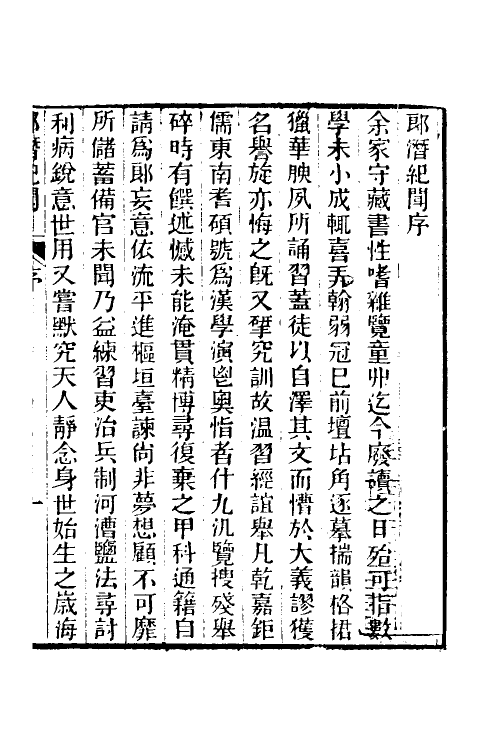 郎潛紀聞序
余家守藏書性嗜雜覽童丱迄今廢讀之日殆可指數
學未小成輒喜弄翰弱冠已前壇坫角逐摹揣韻格捃
獵華腴夙所誦習蓋徒以自澤其文而懵於大義謬獲
名譽旋亦悔之旣又揅究訓故温習經誼舉凡乾嘉鉅
儒東南耆碩號爲漢學演鬯奧恉者什九汎覽搜殘舉
碎時有饌述憾未能淹貫精博尋復棄之甲科通籍自
請爲郞妄意依流平進樞垣臺諫尙非夢想顧不可靡
所儲蓄備官未聞乃益練習吏治兵制河漕鹽法尋討
利病銳意世用又嘗默究天人靜念身世始生之歲海
郎潛紀聞
序
一